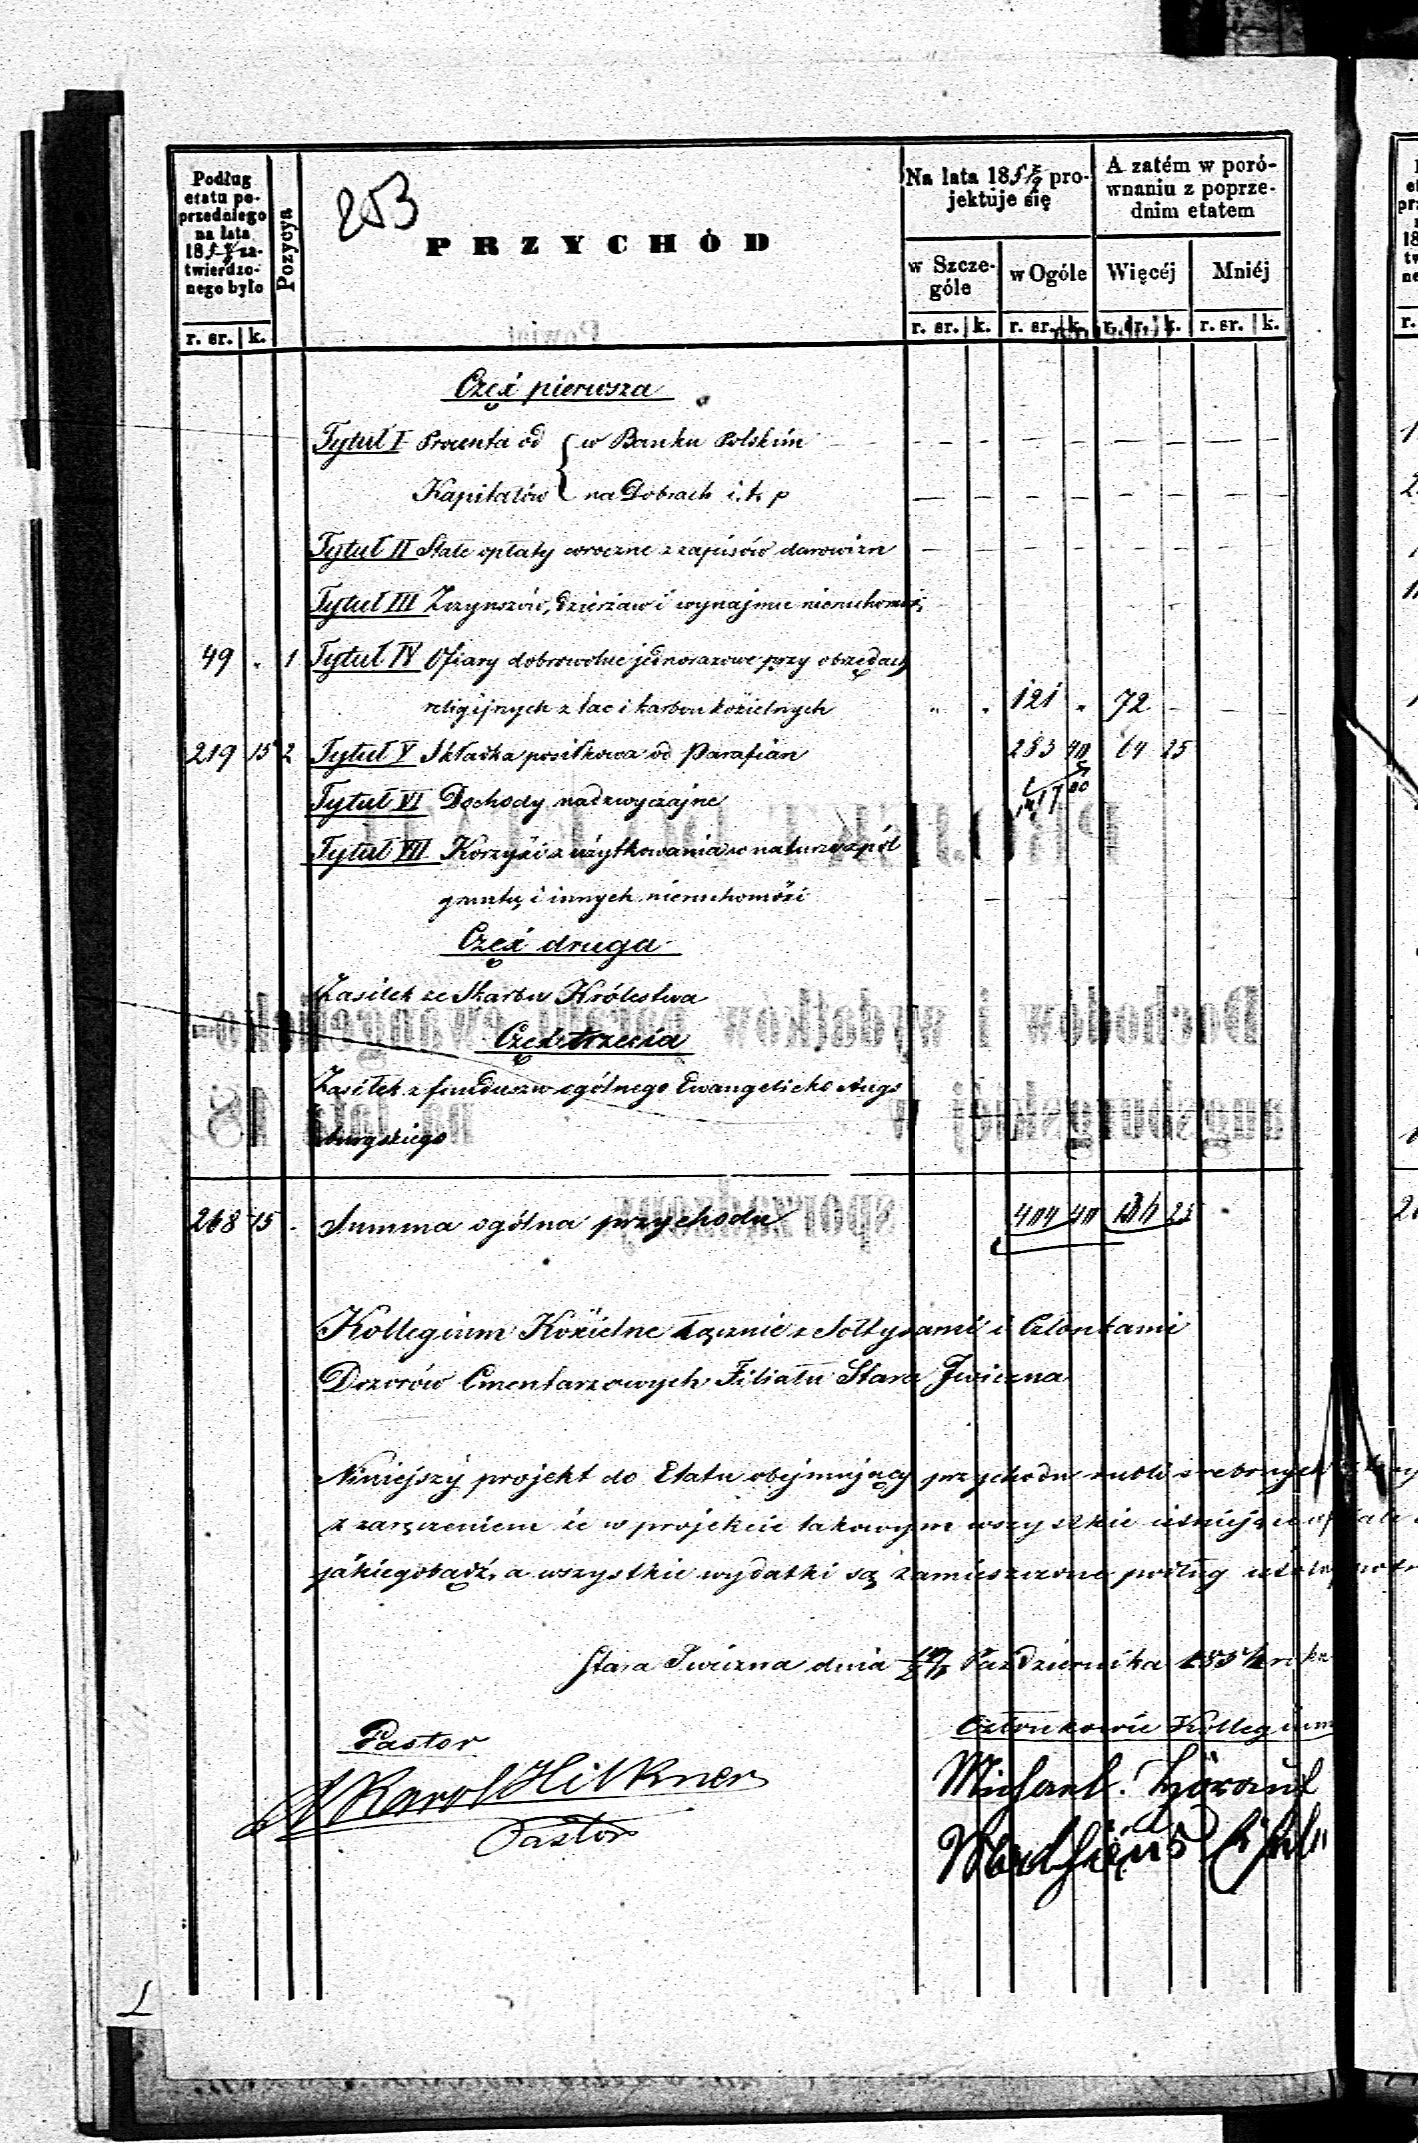 253
Podług
etatu po-
przedniego
na lata
18 za-
twierdzo-
nego było
Pozycya
PRZYCHÓD
Na lata 185 pro-
jektuje się
A zatém w poró-
wnaniu z poprze-
dnim etatem
w Szcze-
góle
w Ogóle
Więcéj
Mniéj
r. sr. k.
r. sr. k. r. sr. k. r. sr. k. r. sr. k.
Częś́ć pierwsza
Tytuł I Procenta od { w Banku Polskim
Kapitałów { na Dobrach i. t. p
Tytuł II Stałe opłaty coroczne z zapisów darowizn
Tytuł III Z czynszów, dzierżaw i wynajmu nieruchomoś.
49 " 1 Tytuł IV Ofiary dobrowolne jednorazowe przy obrzędach
religijnych z tac i karbon kościelnych " " 121 " 72
219 15 2 Tytuł V Składka posiłkowa od Parafian 283 40 64 25
Tytuł VI Dochody nadzwyczajne
Tytuł VII Korzyści z użytkowania w naturze z pól
gruntu, i innych nieruchomości
Część druga
Zasiłek ze Skarbu Królestwa
Część trzecia
Zasiłek z funduszu ogólnego Ewangelicko Augs
burgskiego
268 15 Summa ogólna przychodu 404 40 136 25
Kollegium Kościelne łącznie z Sołtysami i Członkami
Dozorów Cmentarzowych Filiału Stara Iwiczna
Niniejszy projekt do Etatu obejmujący przychodu rubli srebrnych
z zaręczeniem że w projekcie takowym wszystkie istniejące
jakiegobądź, a wszystkie wydatki są zamieszczone podług
Stara Iwiczna dnia Października 185 roku
Pastor
Członkowie Kollegium
Karol Hilkner
Pastor
Michael